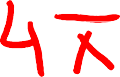 4x̅